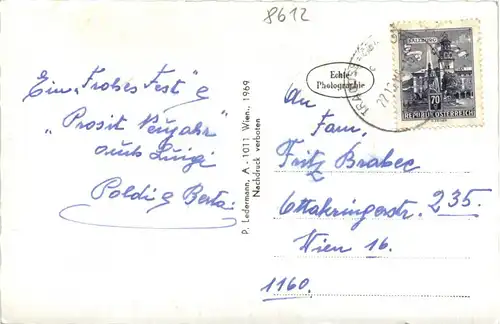 8612
Ein „Frohes Fest" &
„Prosit Neujahr"
Luigi
Poldi & Berta
P. Ledermann, A-1011 Wien, 1969
Nachdruck verboten
Echte
Photographie
SALZBURG
70
REPUBLIK ÖSTERREICH
An
Fam.
Fritz Brabec
Ottakringerstr. 235.
Wien 16.
1160.